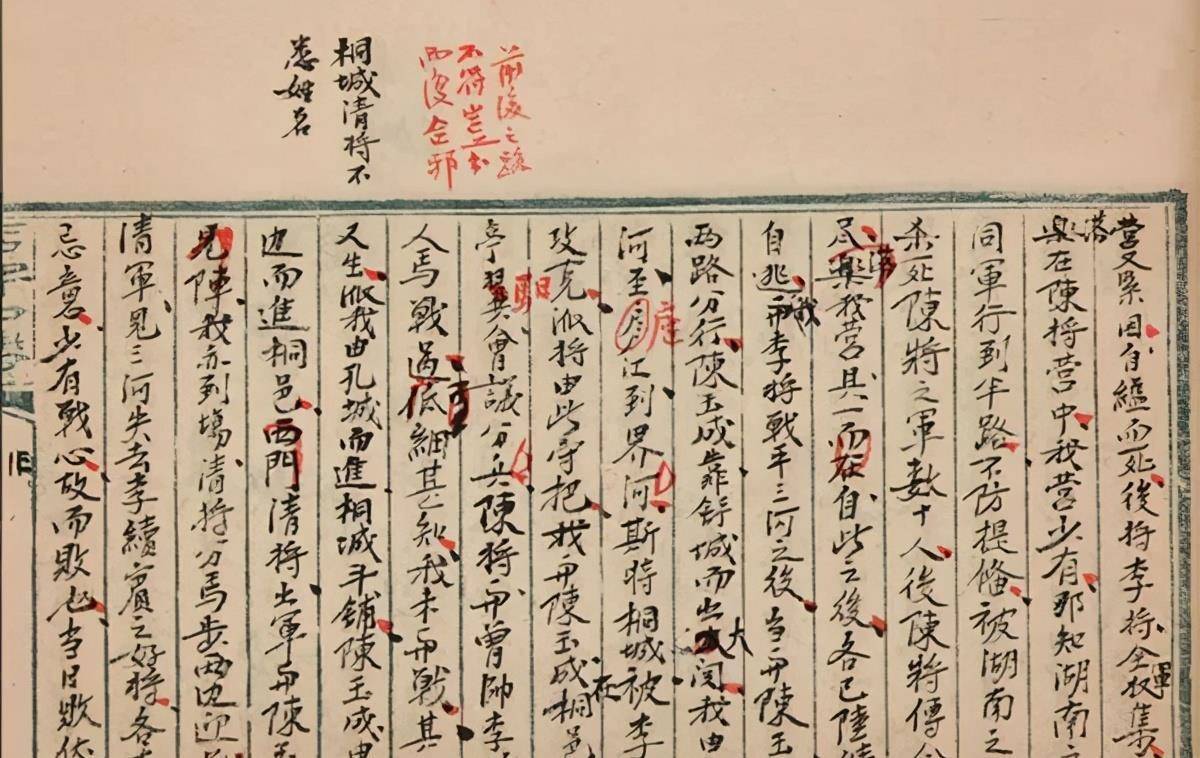 前後之語
不符豈
而復合邪
桐城清將不
悉姓名
營又緊因自縊而死後將李將全軍收集
落樂在陳將營中我營少有那知湖南之
同軍行到半路不防提俻被湖南之
杀死陳將之軍數十人後陳將傳令
尽樂我營具一而在自此之後各已陸續
自逃我与李將戰平三河之後当与陳玉
両路分行陳玉成靠舒城而出大関我由
河至庐江到界河斯時桐城被李
攻克派將由此守把我与陳玉成在桐邑
亭翼會議分兵陳將与曾帥李
人馬戰過低細其知我未与戰其
又生派我由孔城而進桐城斗鋪陳玉成由
边而進桐邑西門清將出軍与陳玉
見陣我亦到塲清將分馬步両边迎
清軍見三河失去李續賓之好將各
忌意少有戰心故而敗也当日敗伏